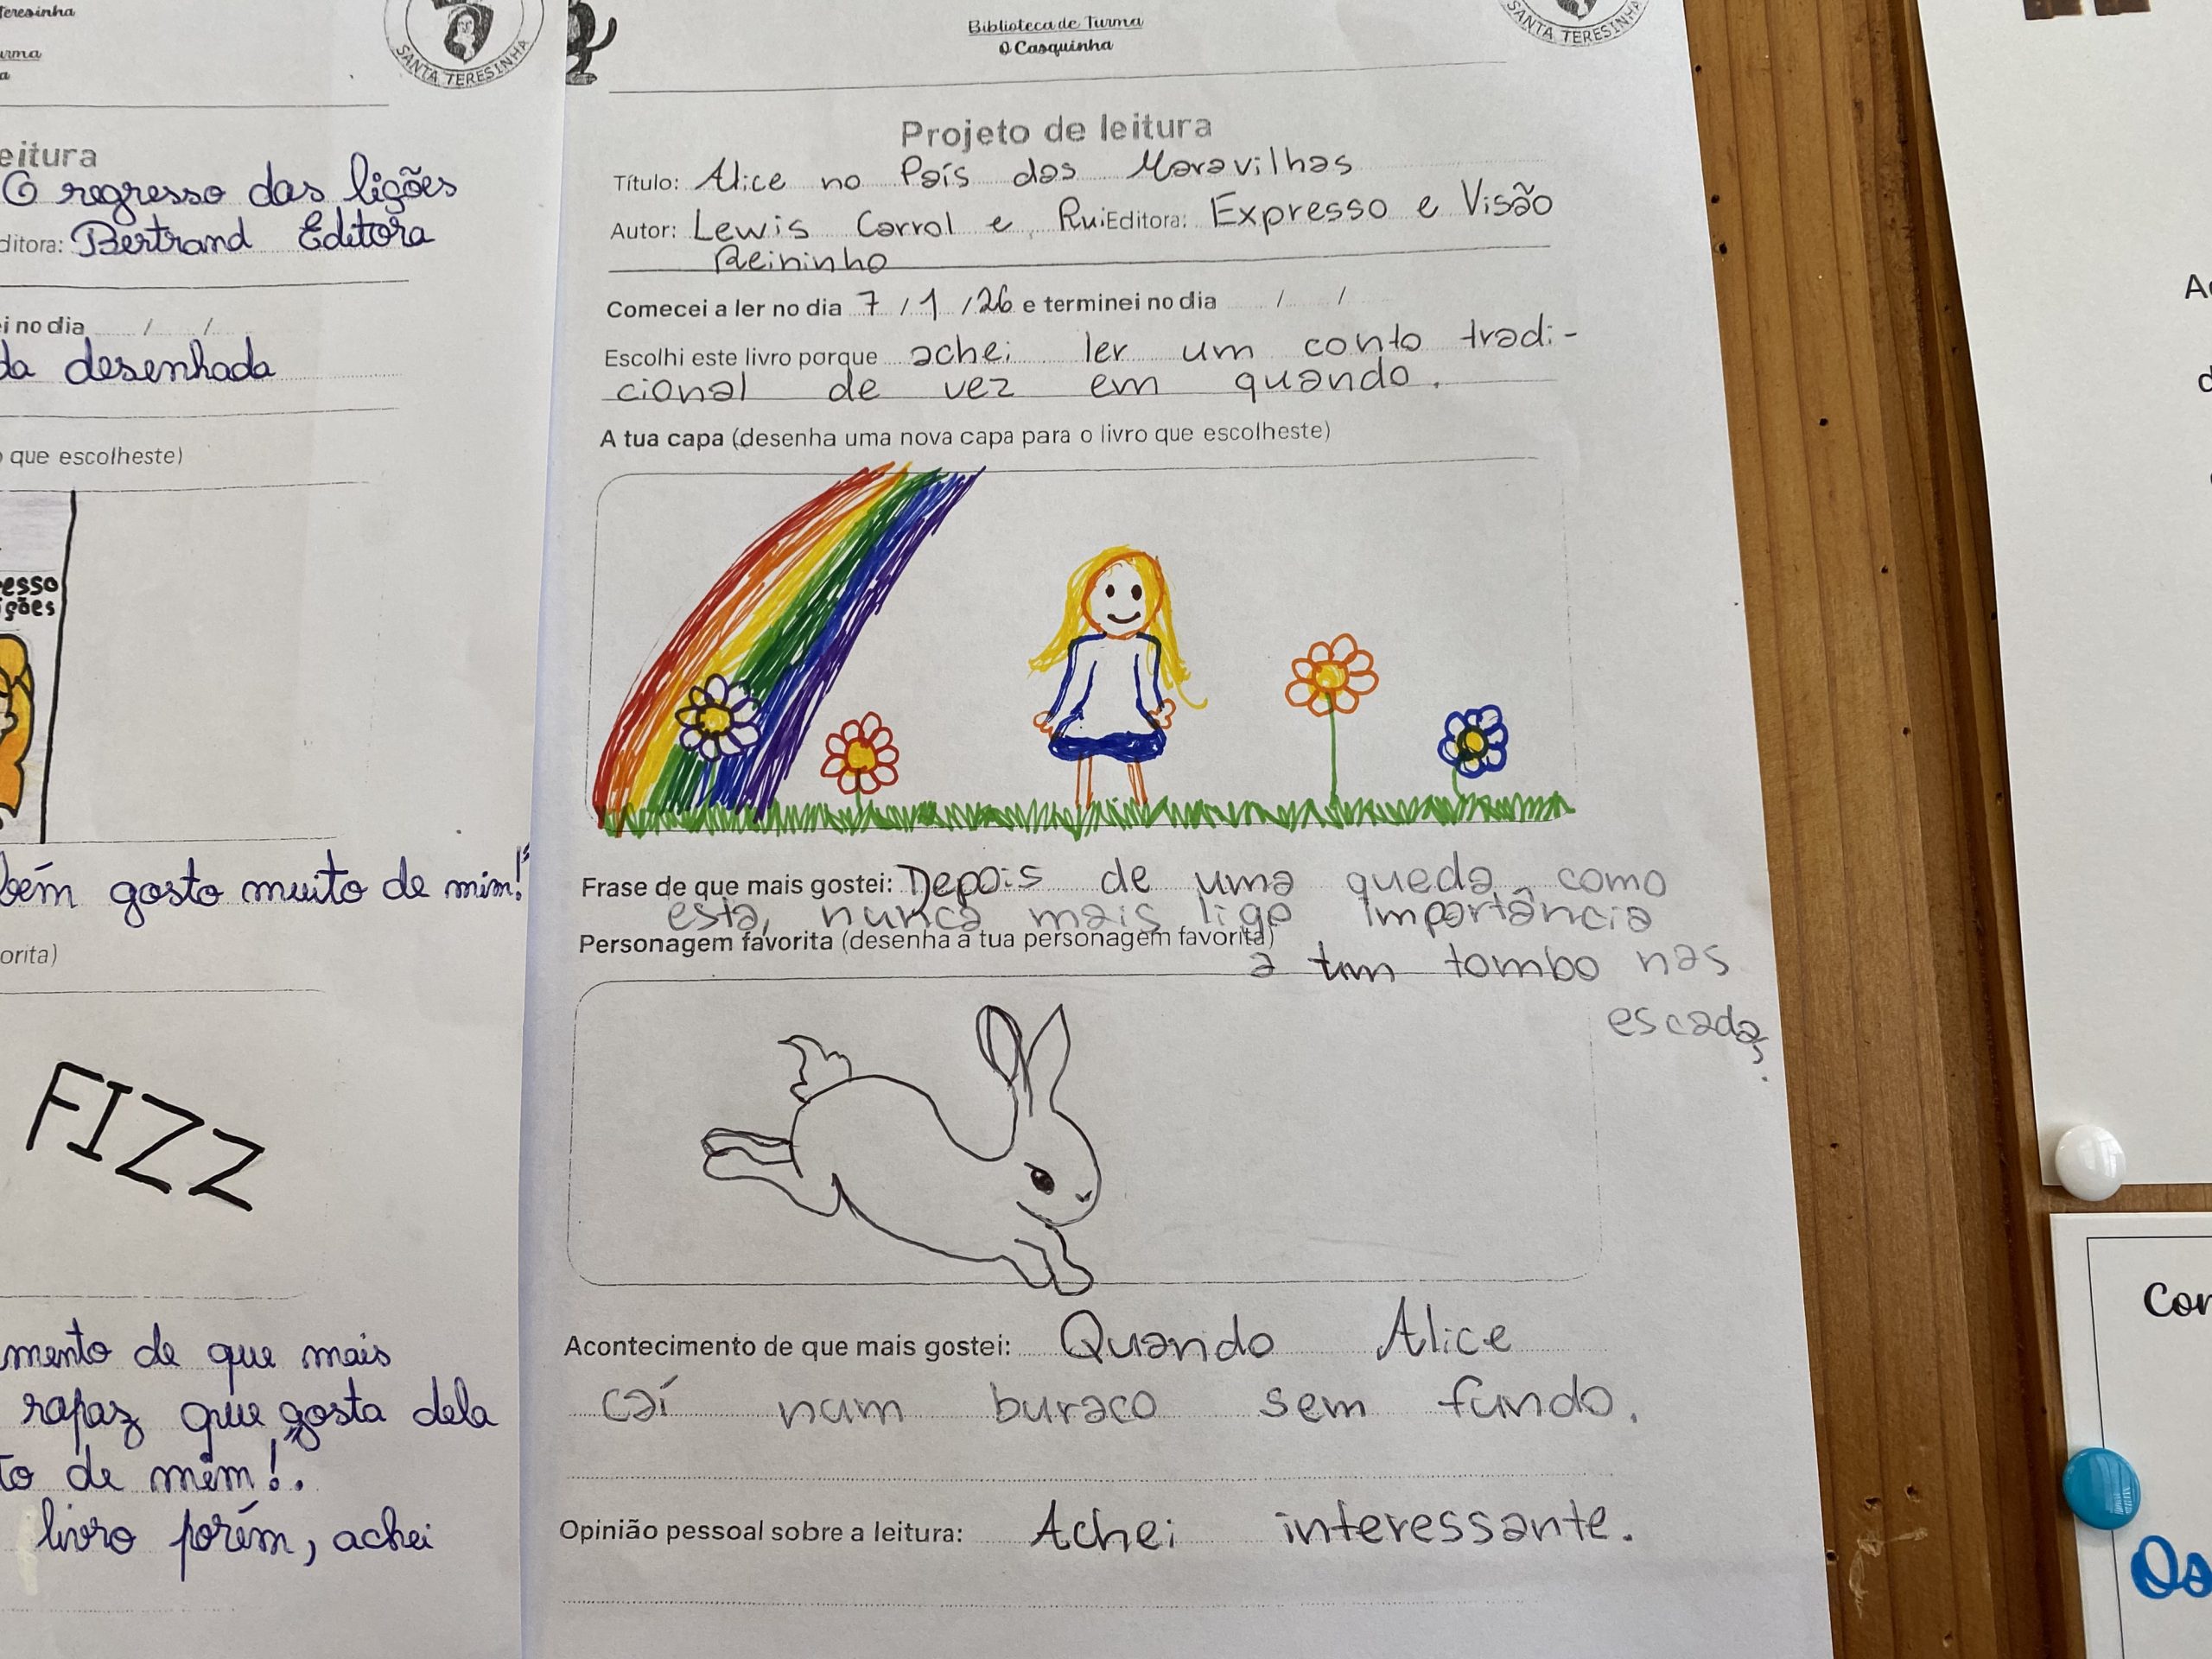 Teresinha
urma
a
SANTA TERESINHA
eitura
O regresso das lições
ditora: Bertrand Editora
ei no dia / /
da desenhada
o que escolheste)
esso
ições
bém gosto muito de mim!"
orita)
FIZZ
mento de que mais
rapaz que "gosta dela
to de mim!".
livro porém, achei
Biblioteca de Turma
O Casquinha
SANTA TERESINHA
Projeto de leitura
Título: Alice no País das Maravilhas
Autor: Lewis Carrol e Rui Editora: Expresso e Visão
Reininho
Comecei a ler no dia 7 / 1 / 26 e terminei no dia / /
Escolhi este livro porque achei ler um conto tradi-
cional de vez em quando.
A tua capa (desenha uma nova capa para o livro que escolheste)
Frase de que mais gostei: Depois de uma queda como
esta, nunca mais ligo importância
Personagem favorita (desenha a tua personagem favorita)
a um tombo nas
escadas.
Acontecimento de que mais gostei: Quando Alice
caí num buraco sem fundo.
Opinião pessoal sobre a leitura: Achei interessante.
A
d
Con
Os